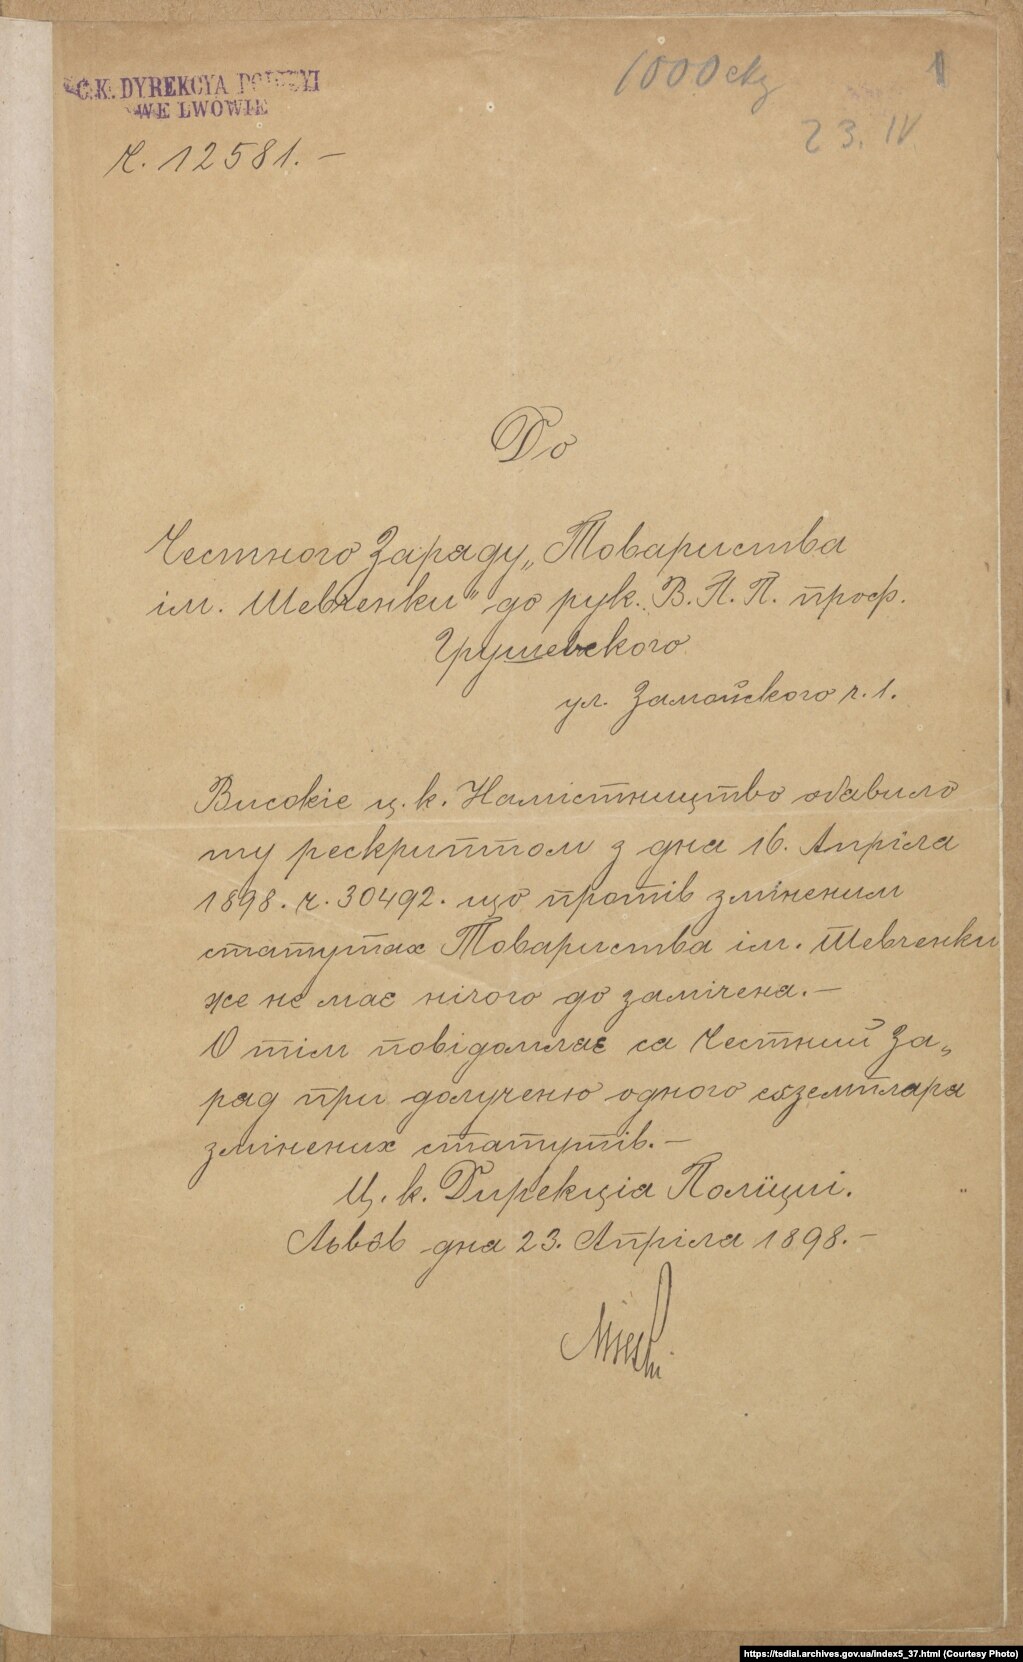 C.K. DYREKCYA POLICYI
WE LWOWIE
1000 ekz
1
Ч. 12581. —
23. IV.
До
Честного Заряду „Товариства
ім. Шевченки" до рук. В. П. П. проф.
Грушевского
ул. Замойского ч. 1.
Високіе ц. к. Намістництво обавило
ту рескриптом з дна 16. Апріла
1898. ч. 30492. що протів зміненим
статутах Товариства ім. Шевченки
же не має нічого до замічена. —
О тім повідомлає са Честний За„
рад при долученю одного екземплара
змінених статутів. —
Ц. к. Дирекціа Поліциі.
Львôв дна 23. Апріла 1898. —
https://tsdial.archives.gov.ua/index5_37.html (Courtesy Photo)